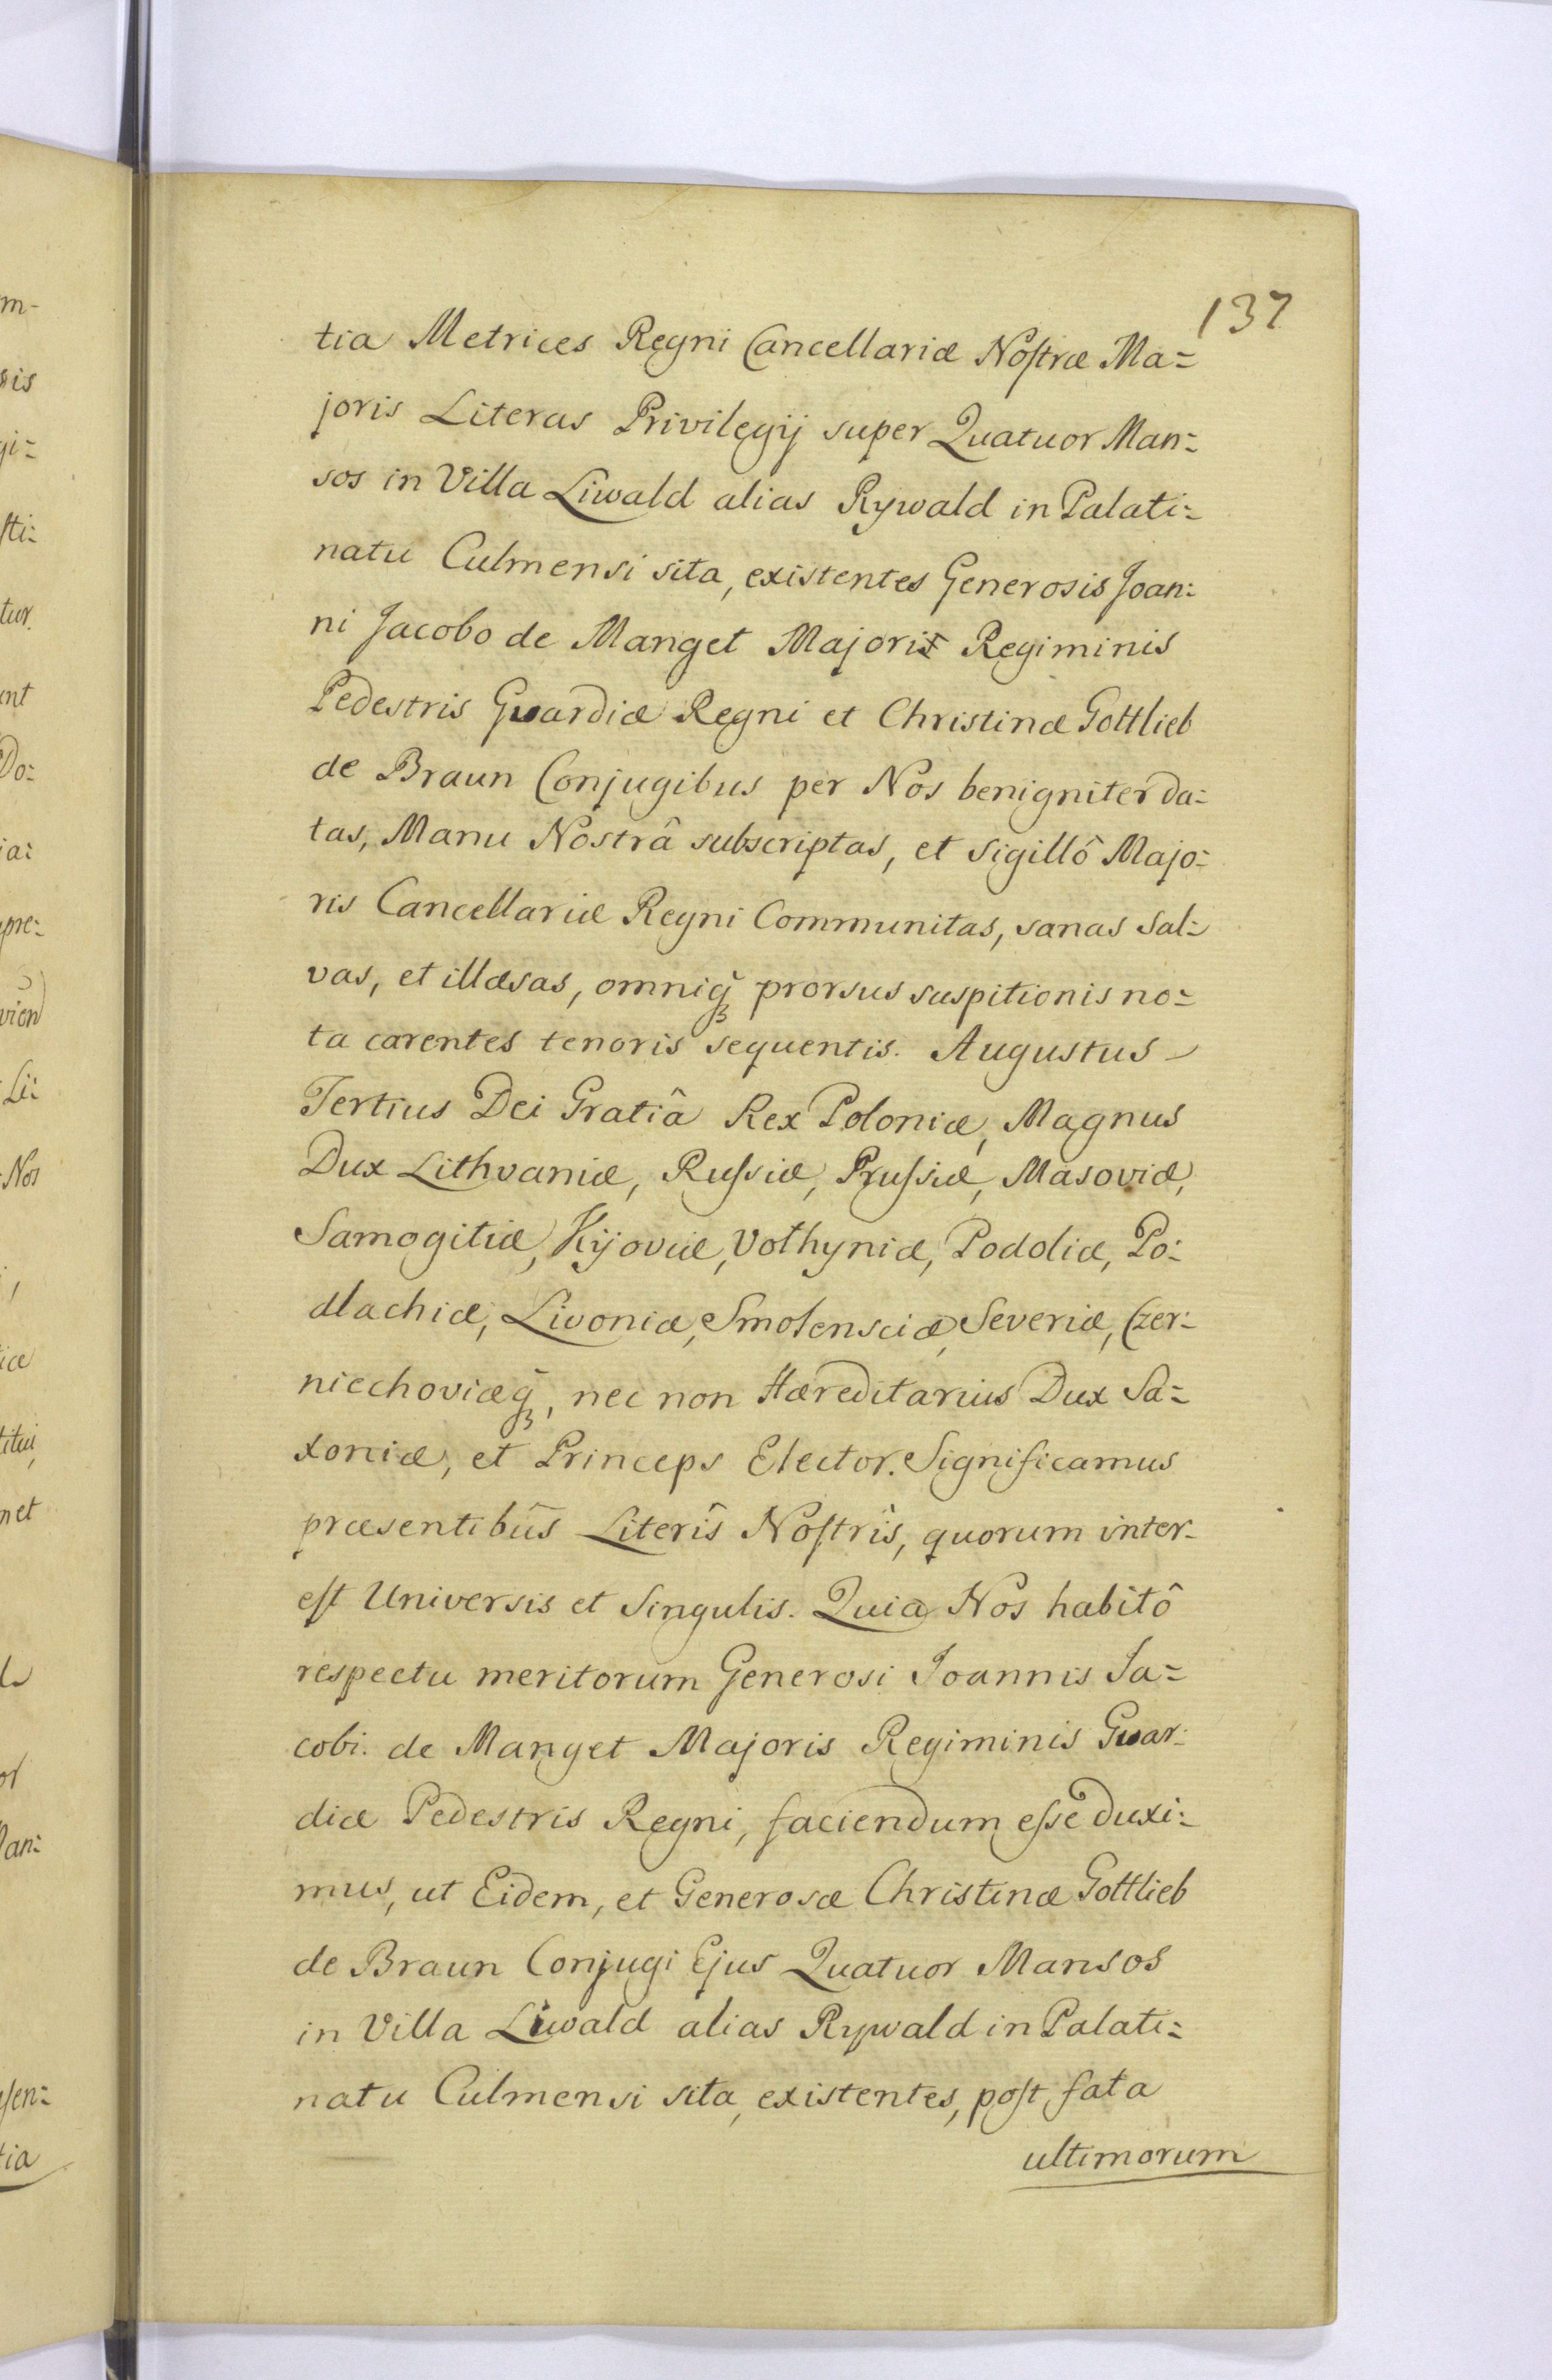 137
tia Metrices Regni Cancellariæ Nostræ Ma=
joris Literas Privilegij super Quatuor Man=
sos in Villa Liwald alias Rywald in Palati=
natu Culmensi sita, existentes Generosis Joan=
ni Jacobo de Manget Majoris Regiminis
Pedestris Gwardiæ Regni et Christinæ Gottlieb
de Braun Conjugibus per Nos benigniter da=
tas, Manu Nostrâ subscriptas, et Sigillô Majo=
ris Cancellariæ Regni Communitas, sanas Sal=
vas, et illæsas, omniq̃ꝫ prorsus suspitionis no=
ta carentes tenoris sequentis. Augustus
Tertius Dei Gratiâ Rex Poloniæ, Magnus
Dux Lithvaniæ, Russiæ, Prussiæ, Masoviæ,
Samogitiæ, Kijoviæ, Volhyniæ, Podoliæ, Po=
dlachiæ, Livoniæ, Smolensciæ, Severiæ, Czer=
niechoviæq̃ꝫ, nec non Hæreditarius Dux Sa=
xoniæ, et Princeps Elector. Significamus
præsentibûs Literîs Nostrîs, quorum inter-
est Universis et Singulis. Quia Nos habitô
respectu meritorum Generosi Joannis Ja=
cobi. de Manget Majoris Regiminis Gwar=
diæ Pedestris Regni, faciendum esse duxi=
mus, ut Eidem, et Generosæ Christinæ Gottlieb
de Braun Conjugi Ejus Quatuor Mansos
in Villa Liwald alias Rywald in Palati=
natu Culmensi sita, existentes, post fata
ultimorum